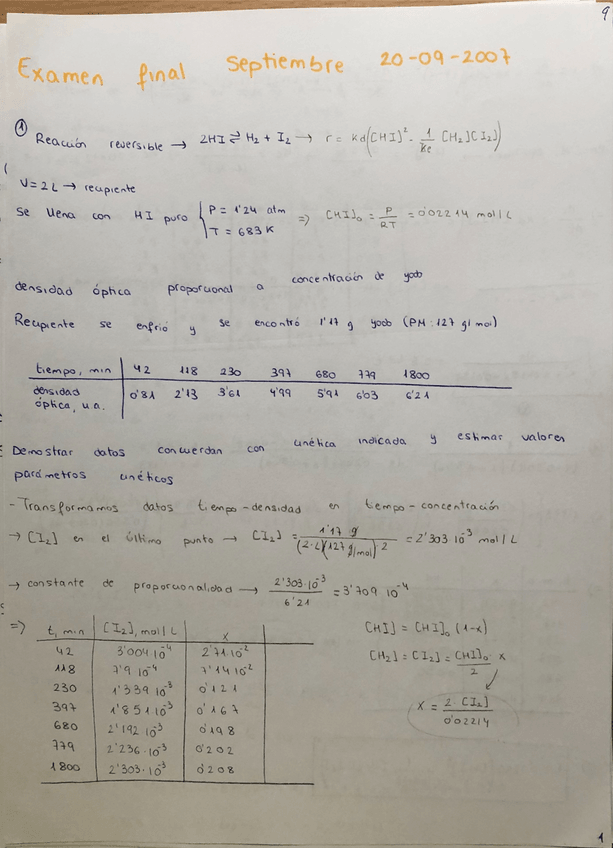 9
Examen final Septiembre 20-09-2007
① Reacción reversible → 2HI ⇌ H2 + I2 → r = kd([HI]² - 1/Ke [H2][I2])
V = 2L → recipiente
Se llena con HI puro { P = 1'24 atm
T = 683 K => [HI]0 = P/RT = 0'02214 mol/L
densidad óptica proporcional a concentración de yodo
Recipiente se enfrió y se encontró 1'17 g yodo (PM: 127 g/mol)
tiempo, min 42 118 230 397 680 779 1800
densidad óptica, u.a. 0'81 2'13 3'61 4'99 5'91 6'03 6'21
Demostrar datos concuerdan con cinética indicada y estimar valores
parámetros cinéticos
- Transformamos datos tiempo-densidad en tiempo-concentración
→ [I2] en el último punto → [I2] = 1'17 g / (2·L)(127 g/mol)·2 = 2'303 10⁻³ mol/L
→ constante de proporcionalidad → 2'303·10⁻³ / 6'21 = 3'709 10⁻⁴
=> t, min [I2], mol/L x
42 3'004 10⁻⁴ 2'71·10⁻²
118 7'9 10⁻⁴ 7'14 10⁻²
230 1'339 10⁻³ 0'121
397 1'851 10⁻³ 0'167
680 2'192 10⁻³ 0'198
779 2'236·10⁻³ 0'202
1800 2'303·10⁻³ 0'208
[HI] = [HI]0 (1-x)
[H2] = [I2] = [HI]0/2 · x
x = 2·[I2] / 0'02214
1